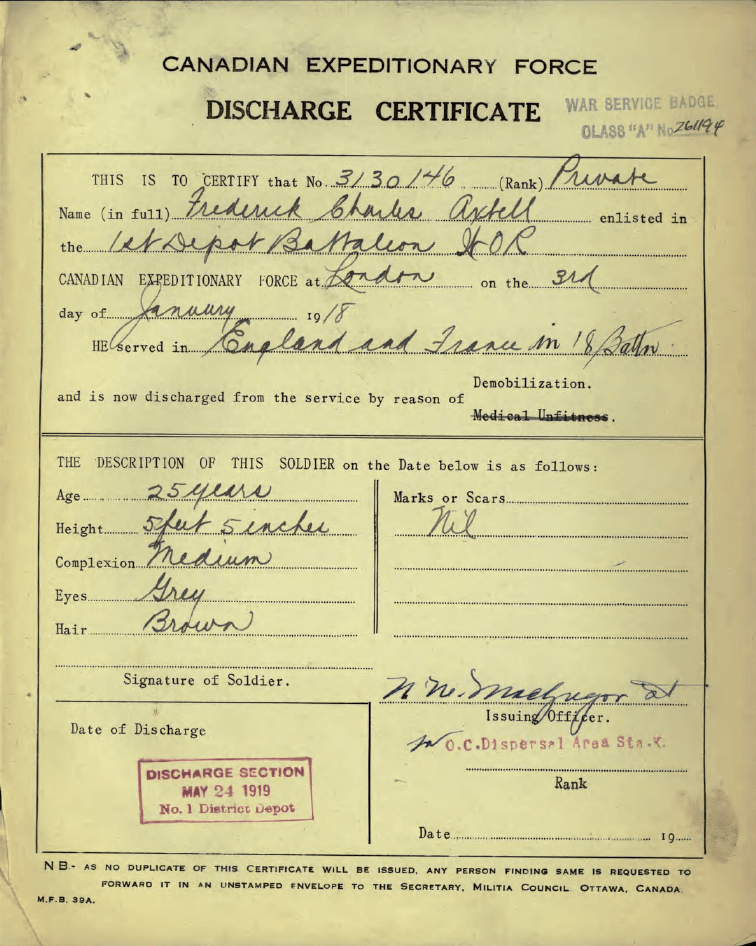 CANADIAN EXPEDITIONARY FORCE
DISCHARGE CERTIFICATE
WAR SERVICE BADGE
CLASS "A" No 261194
THIS IS TO CERTIFY that No. 3130146 (Rank) Private
Name (in full) Frederick Charles Axtell enlisted in
the 1st Depot Battalion WOR
CANADIAN EXPEDITIONARY FORCE at London on the 3rd
day of January 1918
HE served in England and France in 18 Battn
Demobilization.
and is now discharged from the service by reason of
Medical Unfitness.
THE DESCRIPTION OF THIS SOLDIER on the Date below is as follows:
Age 25 years
Height 5 feet 5 inches
Complexion Medium
Eyes Grey
Hair Brown
Marks or Scars
Nil
Signature of Soldier.
MacGregor Lt
Issuing Officer.
O.C. Dispersal Area Sta. K.
Rank
Date 19
Date of Discharge
DISCHARGE SECTION
MAY 24 1919
No. 1 District Depot
NB.- AS NO DUPLICATE OF THIS CERTIFICATE WILL BE ISSUED, ANY PERSON FINDING SAME IS REQUESTED TO
FORWARD IT IN AN UNSTAMPED ENVELOPE TO THE SECRETARY, MILITIA COUNCIL. OTTAWA, CANADA.
M.F.B. 39A.